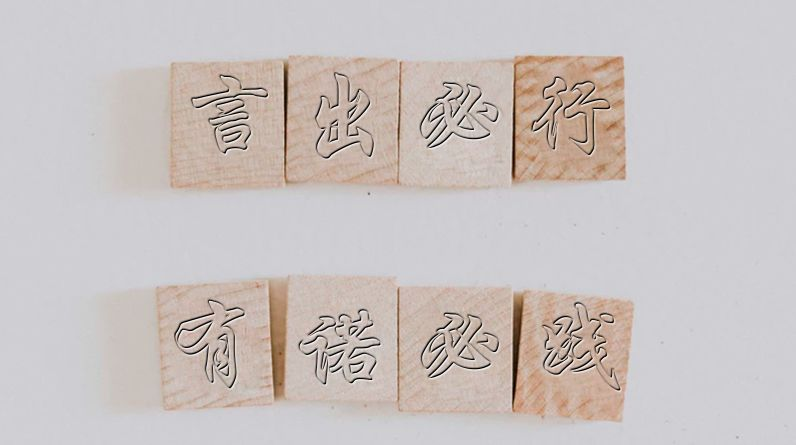 言出必行
有诺必践